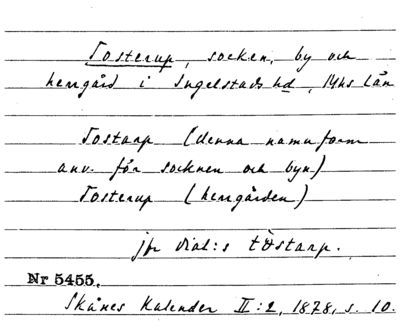 Tosterup, socken, by och
herrgård i Ingelstads hd, Mhs län
Tostarp (denna namnform
anv. för socknen och byn)
Tosterup (herrgården)
jfr dial:s tostarp.
Nr 5455.
Skånes Kalender II:2, 1878, s. 10.